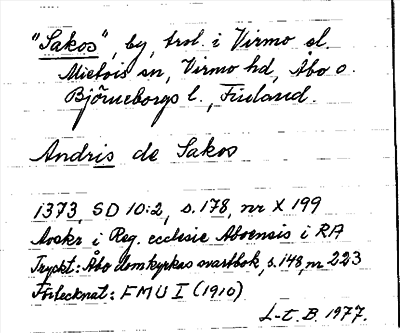 "Sakos", by, trol. i Virmo el.
Mietois sn, Virmo hd, Åbo o.
Björneborgs l., Finland.
Andris de Sakos
1373, SD 10:2, s. 178, nr X 199
Avskr i Reg. ecclesie Aboensis i RA
Tryckt: Åbo domkyrkas svartbok, s. 148, nr 223
Förtecknat: FMU I (1910)
L-t. B. 1977.